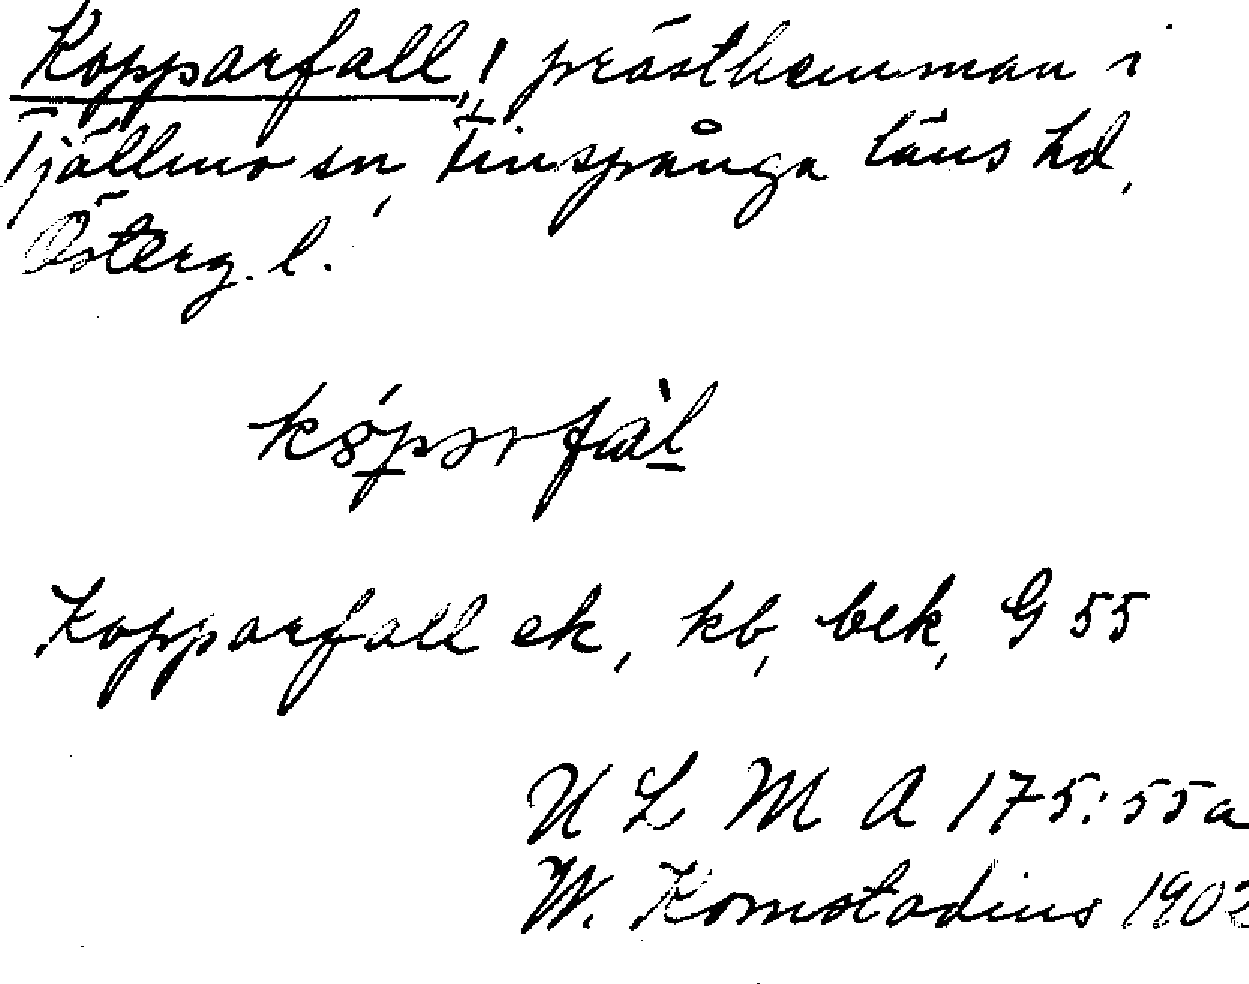 Kopparfall, 1 prästhemman i
Tjällmo sn, Finspånga läns hd,
Österg. l.
Kopparfall ek, kb, bek, G 55
U L M A 175:55a
W. Komstadius 1902